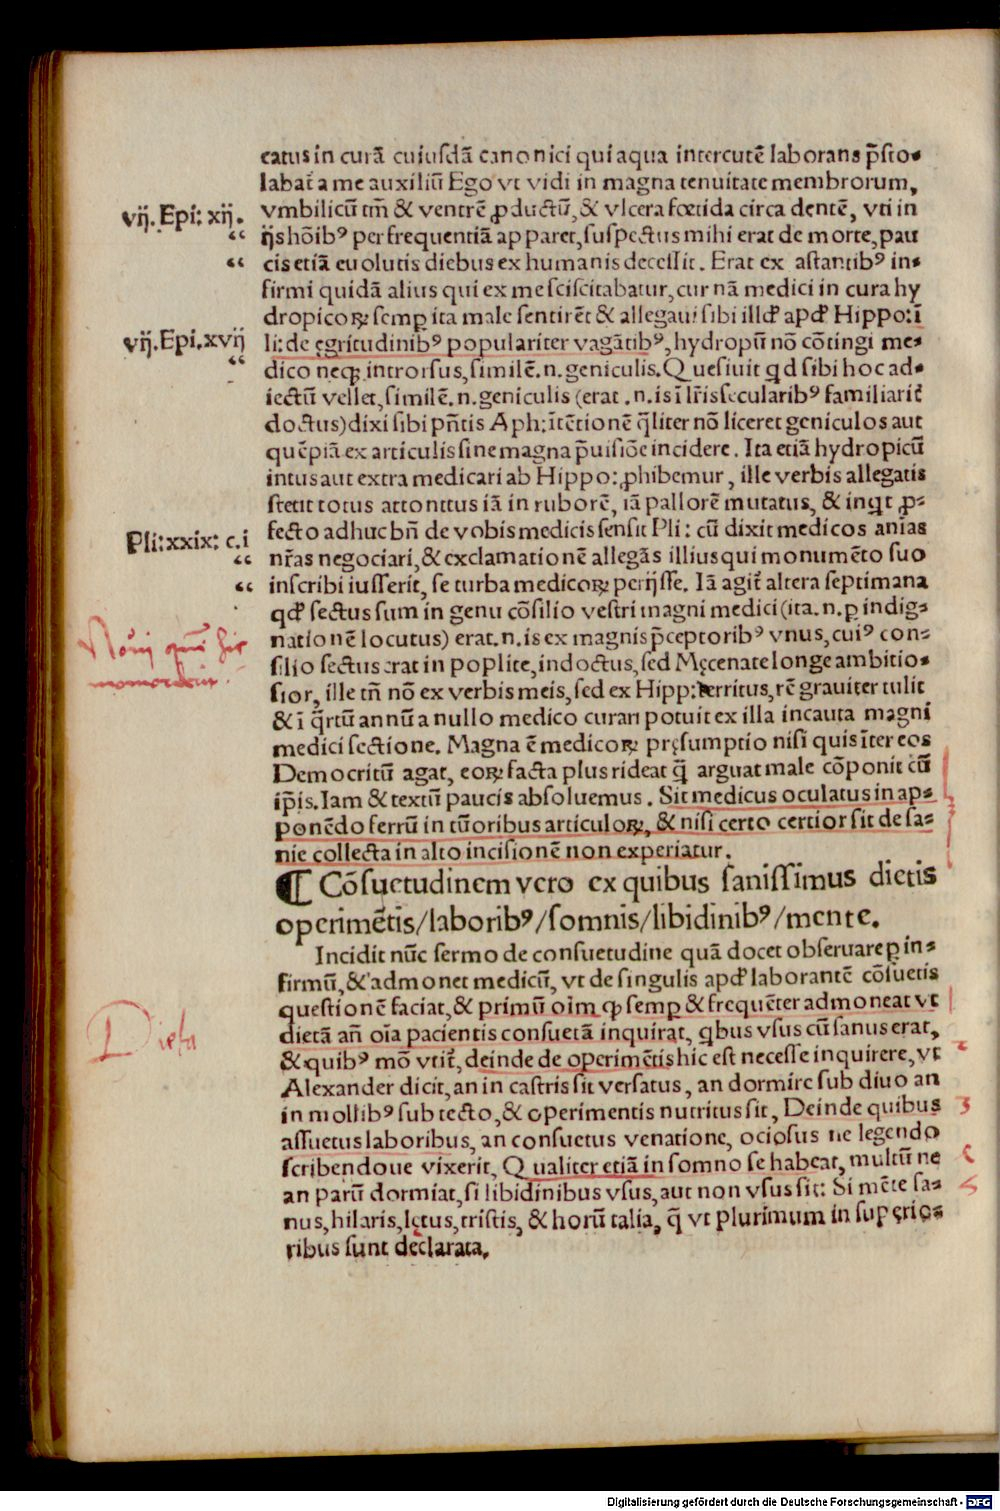 catus in curā cuiusdā canonici qui aqua intercutē laborans p̄sto-
labat̄ a me auxiliū Ego vt vidi in magna tenuitate membrorum,
vij. Epi: xij.
vmbilicū tm̄ & ventrē ꝓductū, & vlcera fœtida circa dentē, vti in
“
ijs hōibꝰ per frequentiā apparet, suspectus mihi erat de morte, pau
“
cis etiā euolutis diebus ex humanis decessit. Erat ex astantibꝰ in-
firmi quidā alius qui ex me sciscitabatur, cur nā medici in cura hy
dropicoꝝ semꝑ ita male sentirēt & allegaui sibi illd̛ apd̛ Hippo: ī
vij. Epi. xvij
li: de ęgritudinibꝰ populariter vagātibꝰ, hydropū nō cōtingi me-
“
dico neqꝫ introrsus, similē. n. geniculis. Quesiuit qd sibi hoc ad-
iectū vellet, similē. n. geniculis (erat. n. is ī lr̄is secularibꝰ familiarit̄
doctus) dixi sibi pn̄tis Aph: ītētionē q̄liter nō liceret geniculos aut
quēpiā ex articulis sine magna p̄uisiōe incidere. Ita etiā hydropicū
intus aut extra medicari ab Hippo: ꝓhibemur, ille verbis allegatis
stetit totus attonitus iā in ruborē, iā pallorē mutatus, & inqt ꝓ-
Pli: xxix: c. i
fecto adhuc bn̄ de vobis medicis sensit Pli: cū dixit medicos anīas
“
nr̄as negociari, & exclamationē allegās illius qui monumēto suo
“
inscribi iusserit, se turba medicoꝝ perijsse. Iā agit̄ altera septimana
qd̛ sectus sum in genu cōsilio vestri magni medici (ita. n. ꝑ indig-
nationē locutus) erat. n. is ex magnis p̄ceptoribꝰ vnus, cuiꝰ con-
silio sectus erat in poplite, indoctus, sed Męcenate longe ambitio-
sior, ille tn̄ nō ex verbis meis, sed ex Hipp: territus, rē grauiter tulit
& ī q̄rtū annū a nullo medico curari potuit ex illa incauta magni
medici sectione. Magna ē medicoꝝ pręsumptio nisi quis īter eos
Democritū agat, eoꝝ facta plus rideat q̄ arguat male cōponit cū
ip̄is. Iam & textū paucis absoluemus. Sit medicus oculatus in ap-
ponēdo ferrū in tūoribus articuloꝝ, & nisi certo certior sit de sa-
nie collecta in alto incisionē non experiatur.
¶ Cōsuetudinem vero ex quibus sanissimus dietis
operimētis/laboribꝰ/somnis/libidinibꝰ/mente.
Incidit nūc sermo de consuetudine quā docet obseruare ꝑ in-
firmū, & admonet medicū, vt de singulis apd̛ laborantē cōsuetis
questionē faciat, & primū oīm ꝙ semꝑ & frequēter admoneat vt
Dieta
dietā an̄ oīa pacientis consuetā inquirat, qbus vsus cū sanus erat,
& quibꝰ mō vtit̄, deinde de operimētis hic est necesse inquirere, vt
2
Alexander dicit, an in castris sit versatus, an dormire sub diuo an
in mollibꝰ sub tecto, & operimentis nutritus sit, Deinde quibus
3
assuetus laboribus, an consuetus venatione, ociosus ne legendo
scribendoue vixerit, Qualiter etiā in somno se habeat, multū ne
an parū dormiat, si libidinibus vsus, aut non vsus sit: Si mēte sa-
5
nus, hilaris, lętus, tristis, & horū talia, q̄ vt plurimum in superio-
ribus sunt declarata.
Digitalisierung gefördert durch die Deutsche Forschungsgemeinschaft - DFG